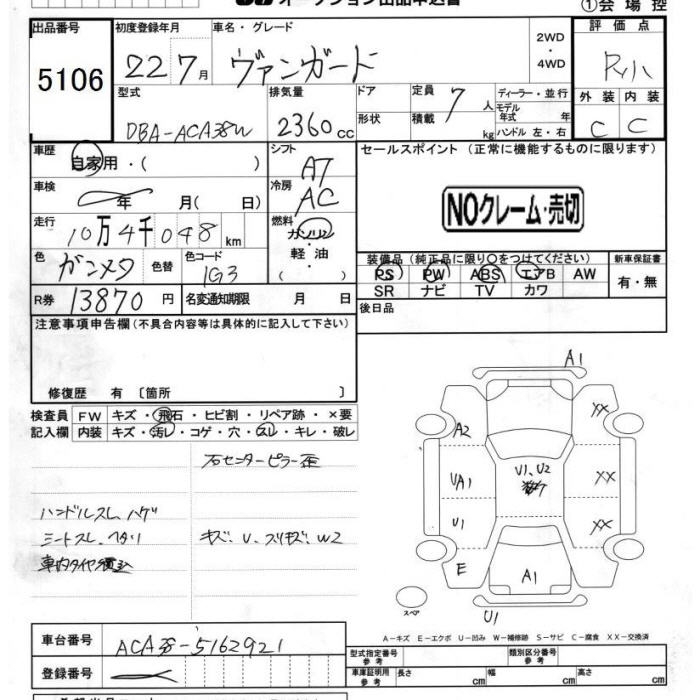 オークション出品申込書
①会場控
出品番号
5106
初度登録年月
22 7月
車名・グレード
ヴァンガード
2WD
4WD
評価点
外装 内装
C C
型式
DBA-ACA38W
排気量
2360cc
ドア
形状
定員 7人
積載 kg
ディーラー・並行
モデル年式 年
ハンドル 左・右
車歴
自家用・( )
シフト
AT
セールスポイント (正常に機能するものに限ります)
NOクレーム・売切
車検
年 月( 日)
冷房
AC
走行
10万4千048km
燃料
ガソリン
軽油
( )
色 ガンメタ
色替
色コード
1G3
装備品 (純正品に限り○をつけてください)
新車保証書
PS PW ABS エアB AW
SR ナビ TV カワ
有・無
R券 13870円
名変通知期限 月 日
後日品
注意事項申告欄(不具合内容等は具体的に記入して下さい)
修復歴 有 〔箇所 〕
検査員
記入欄
FW キズ・飛石・ヒビ割・リペア跡・×要
内装 キズ・汚レ・コゲ・穴・スレ・キレ・破レ
右センターピラー歪
ハンドルスレ、ハゲ
シートスレ、ヘタリ
キズ、U、スリキズ、W2
車内タイヤ積込
A1
XX
A2
U1、U2
UA1
XX
U1
XX
E
A1
スペア
U1
A−キズ E−エクボ U−凹み W−補修跡 S−サビ C−腐食 XX−交換済
車台番号
ACA38-5162921
登録番号
型式指定番号
参考
類別区分番号
参考
車庫証明用
参考
長さ cm 幅 cm 高さ cm